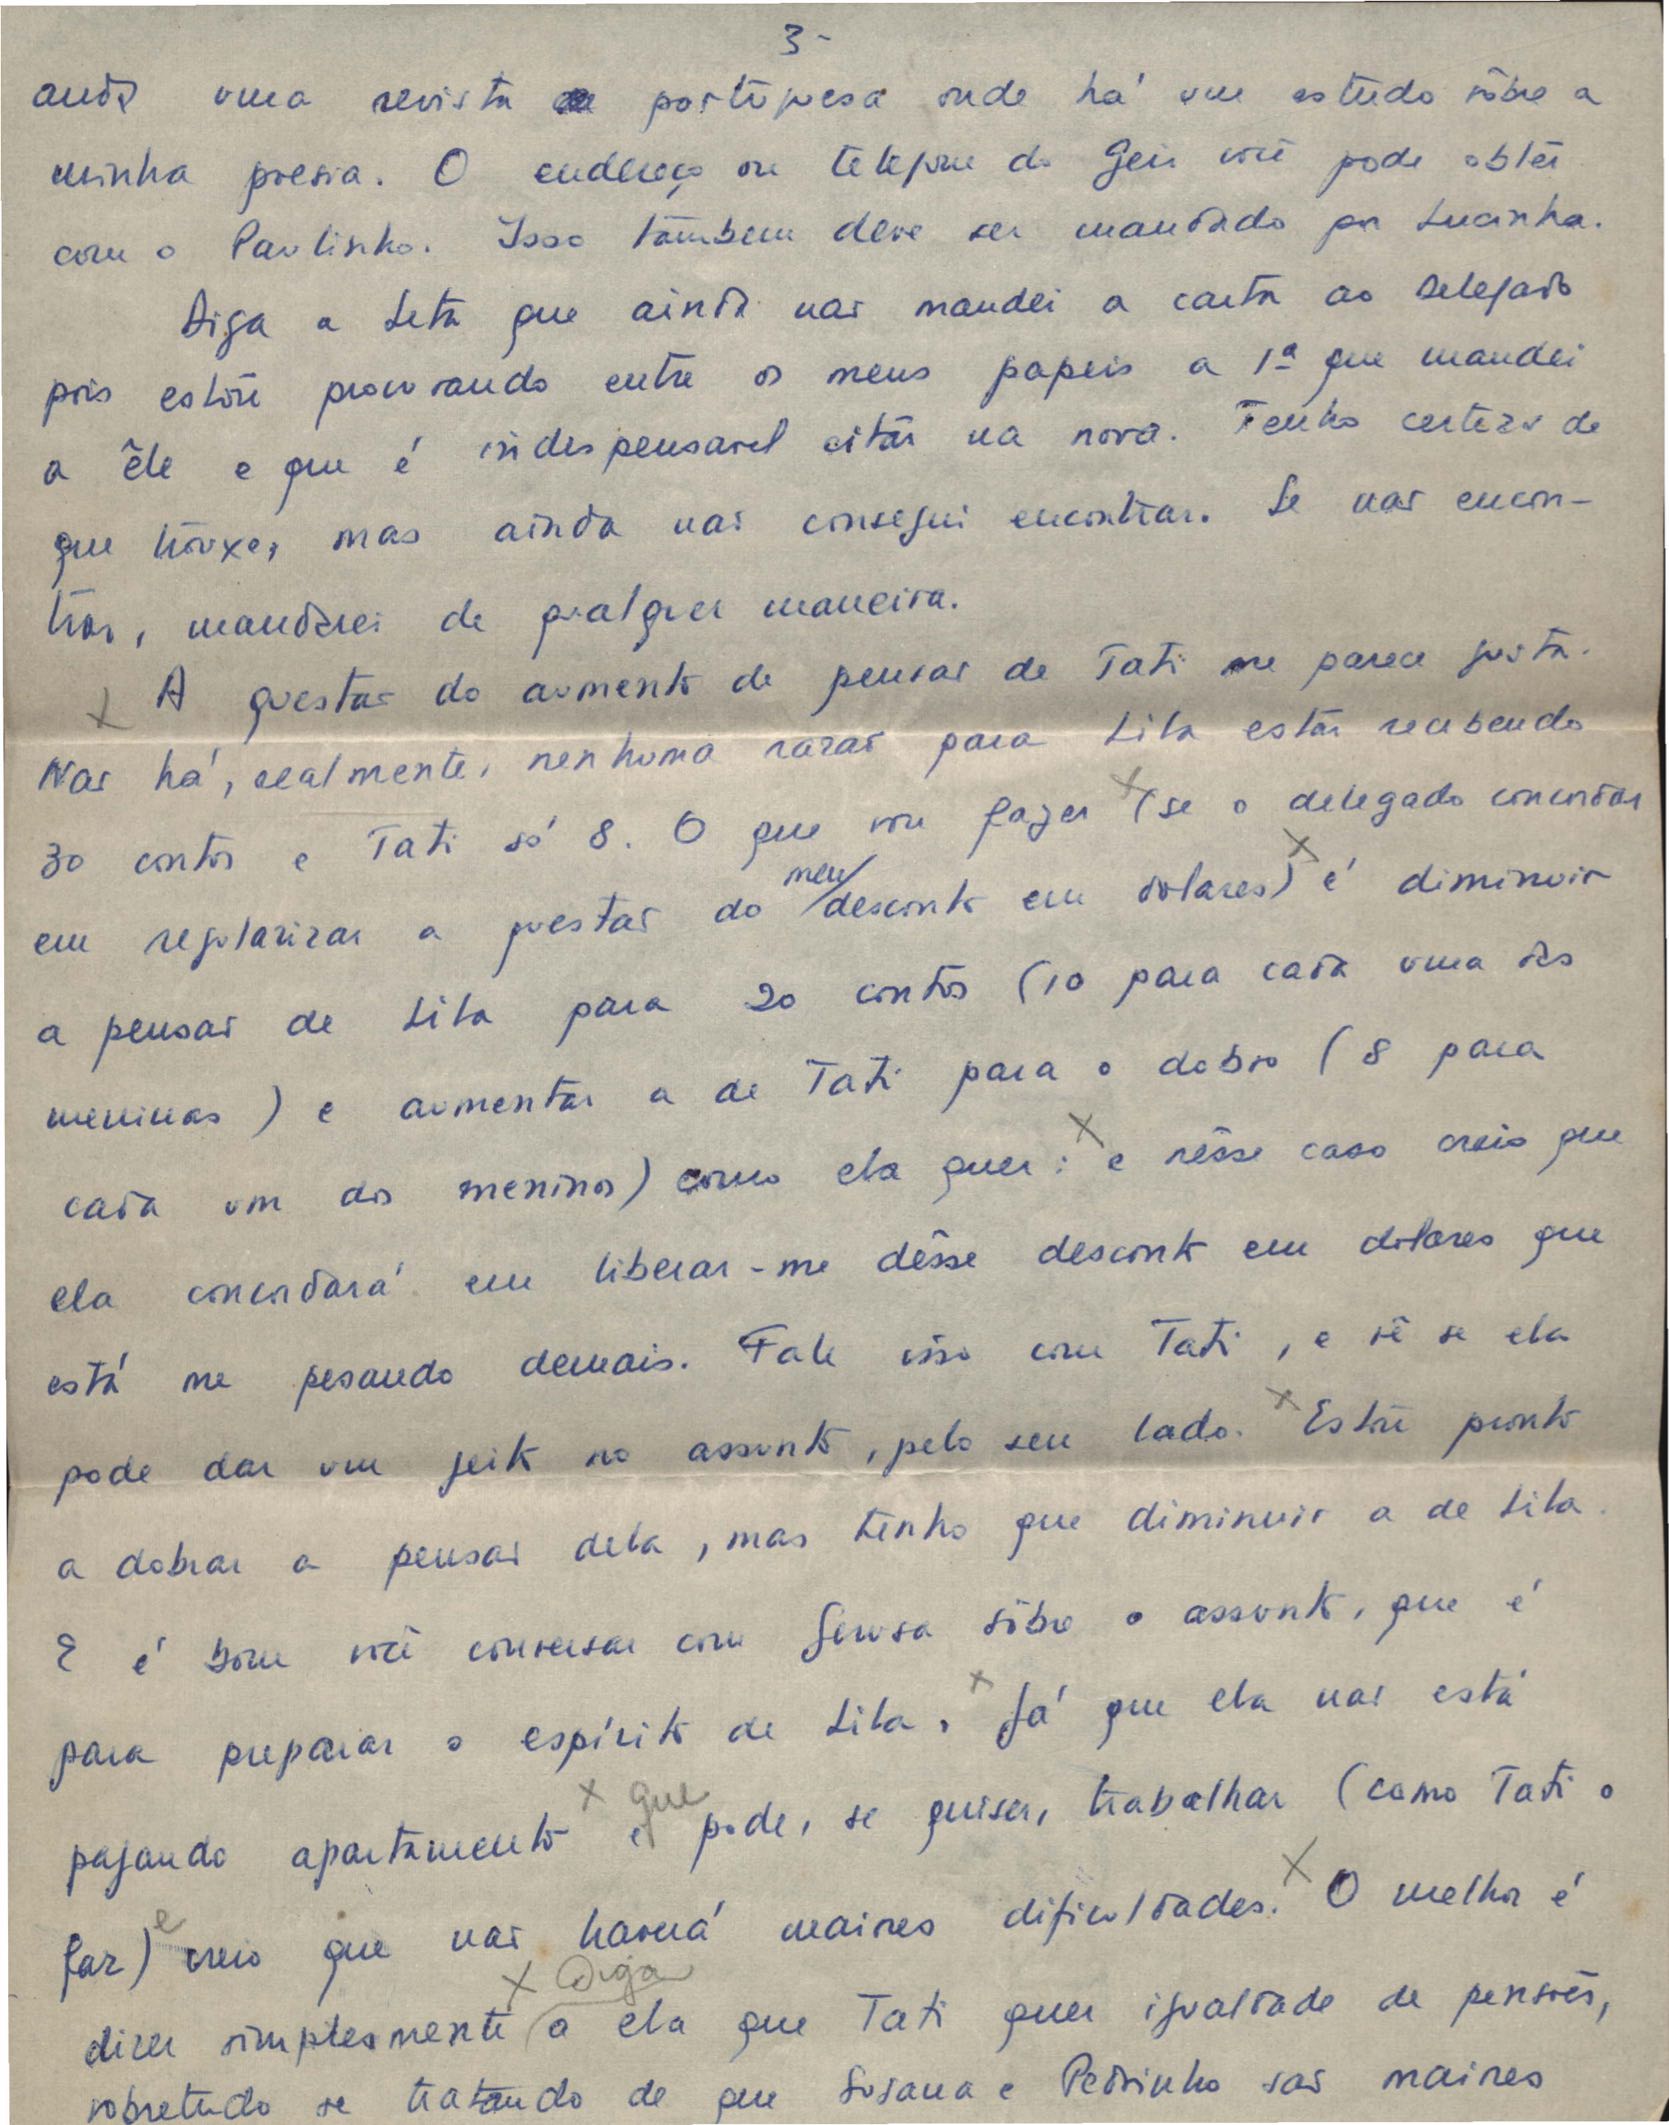 3-
anda uma revista portuguesa onde há um estudo sôbre a
minha poesia. O endereço ou telefone do Geir você pode obter
com o Paulinho. Isso tambem deve ser mandado por Lucinha.
Diga a Leta que ainda não mandei a carta ao Delegado
pois estou procurando entre os meus papeis a 1ª que mandei
a êle e que é indespensavel citar na nova. Tenho certeza de
que trouxe, mas ainda não consegui encontrar. Se não encon-
trar, mandarei de qualquer maneira.
x A questão do aumento de pensão de Tati me parece justa.
Não há, realmente, nenhuma razão para Lila estar recebendo
30 contos e Tati só 8. O que vou fazer x (se o delegado concordar
em regularizar a questão do meu/ desconto em dolares) x é diminuir
a pensão de Lila para 20 contos (10 para cada uma das
meninas) e aumentar a de Tati para o dobro (8 para
cada um dos meninos) como ela quer: x e nêsse caso creio que
ela concordará em liberar-me dêsse desconto em dolares que
está me pesando demais. Fale isso com Tati, e vê se ela
pode dar um jeito no assunto, pelo seu lado. x Estou pronto
a dobrar a pensão dela, mas tenho que diminuir a de Lila.
E é bom você conversar com Gerusa sôbre o assunto, que é
para preparar o espírito de Lila. x Já que ela não está
pagando apartamento x e que pode, se quiser, trabalhar (como Tati o
faz) e creio que não haverá maiores dificuldades. x O melhor é
dizer simplesmente x Diga a ela que Tati quer igualdade de pensões,
sobretudo se tratando de que Susana e Pedrinho são maiores